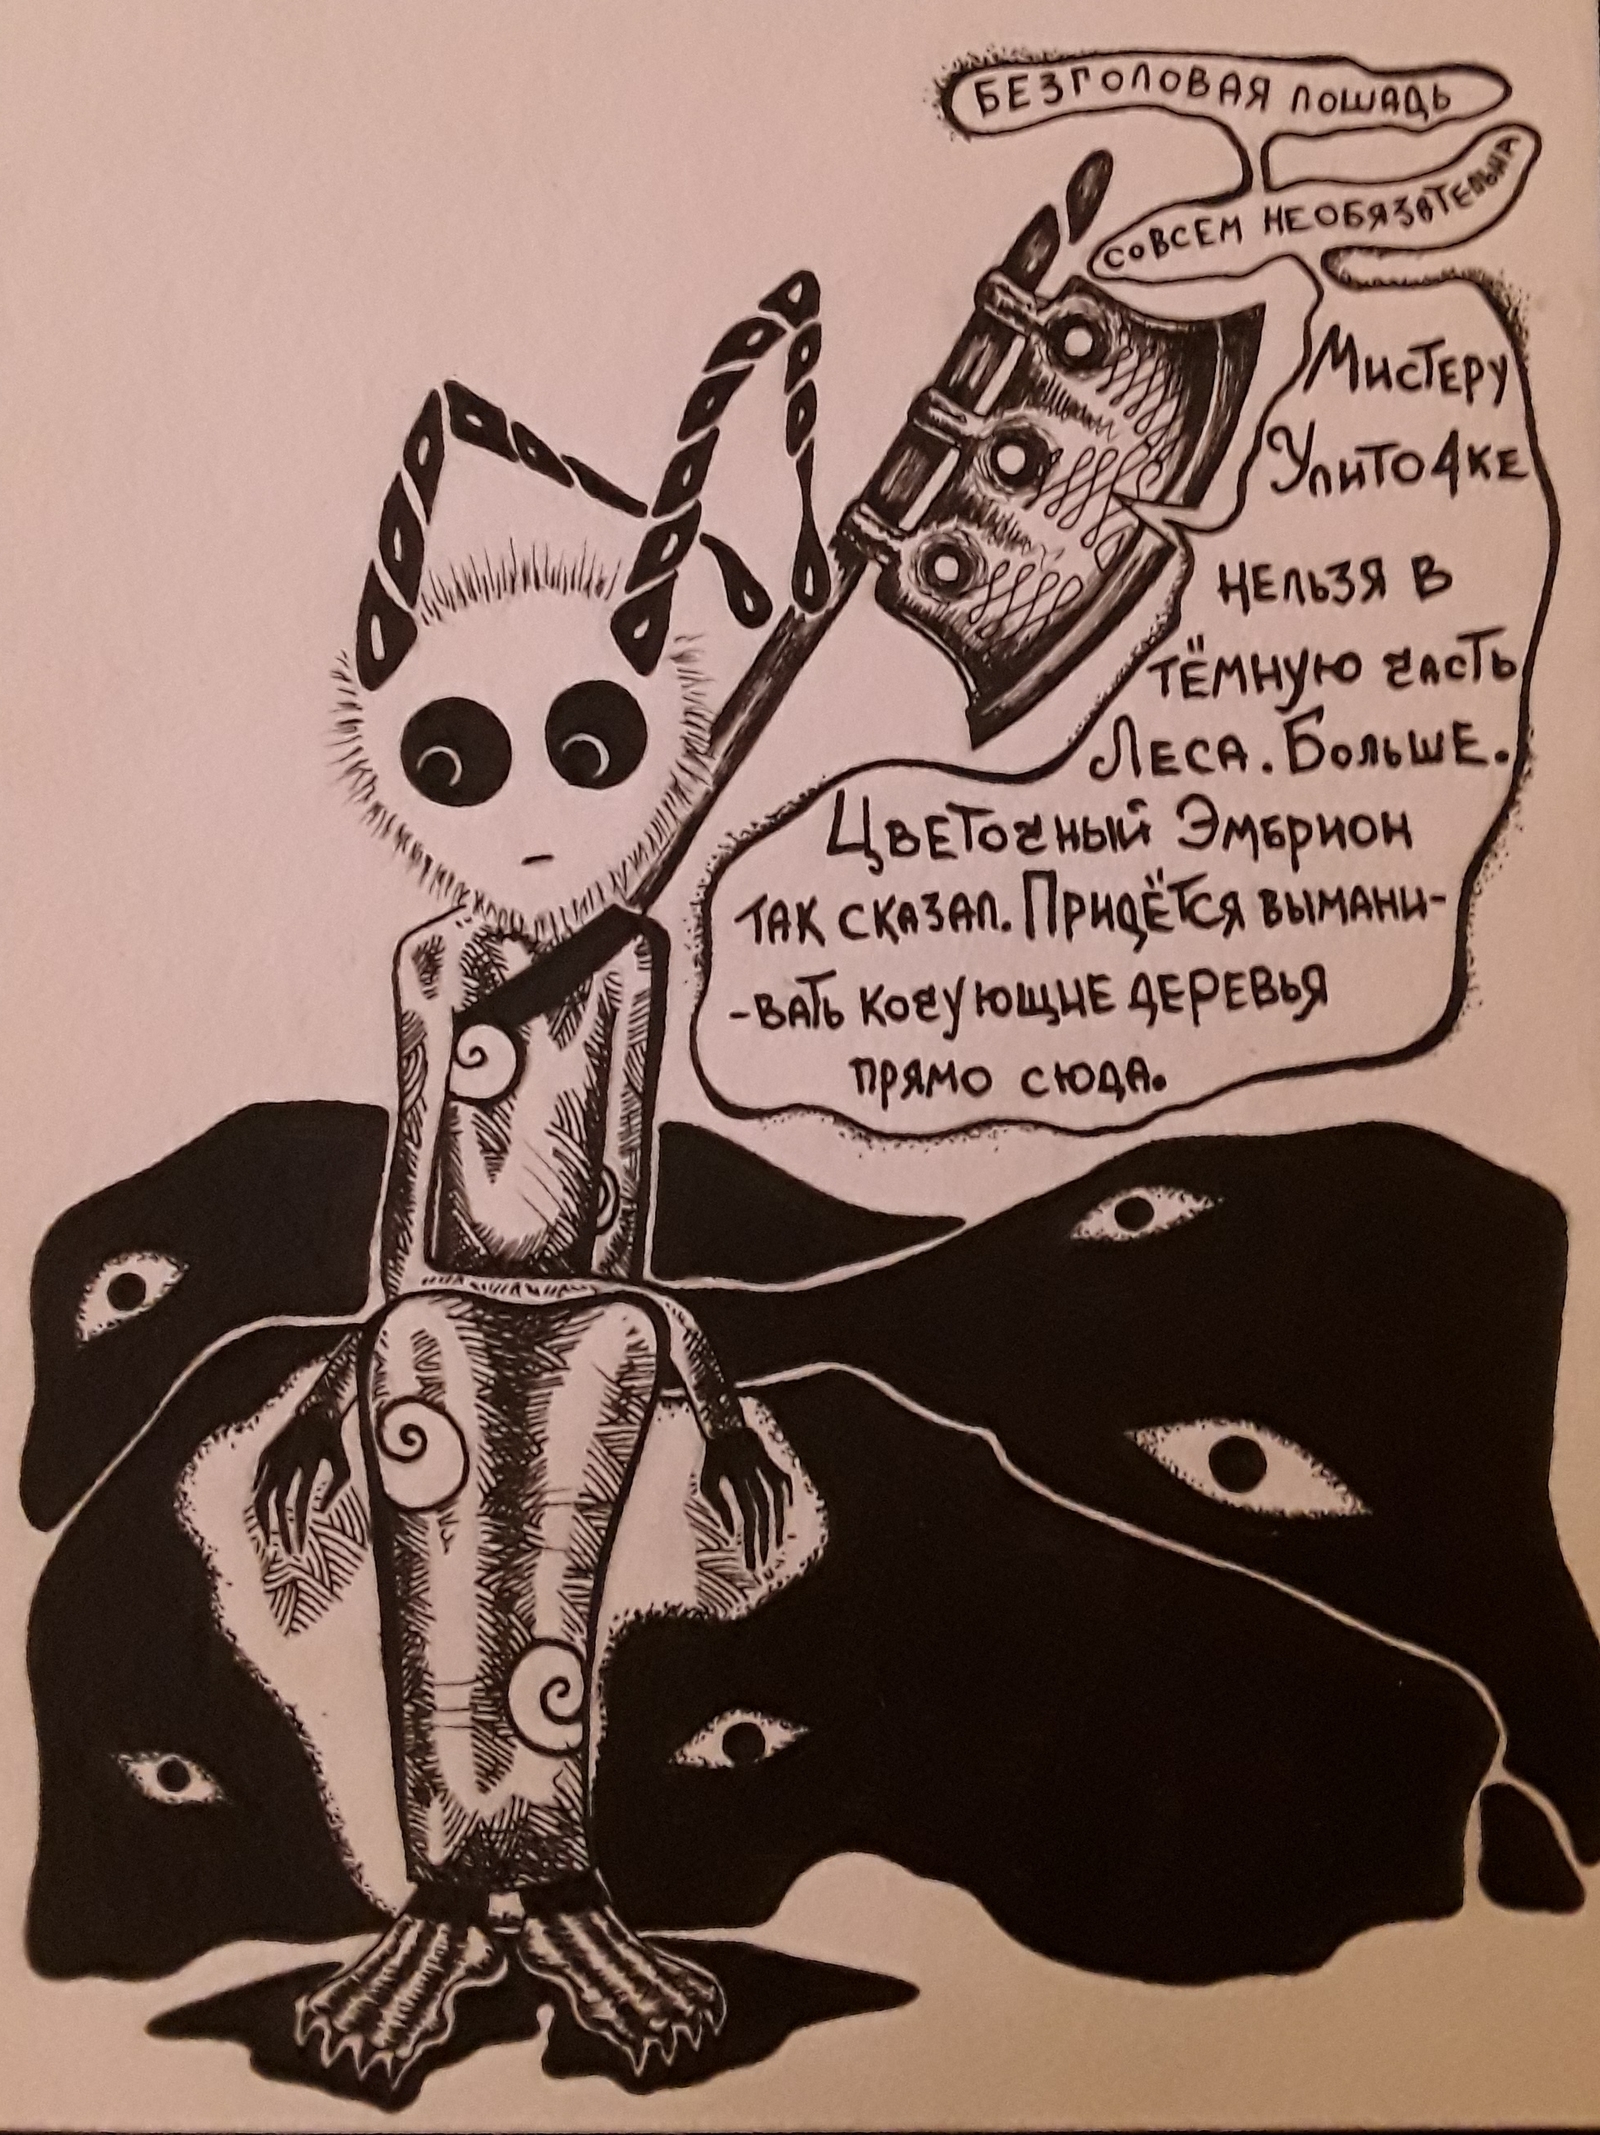 БЕЗГОЛОВАЯ ЛОШАДЬ
СОВСЕМ НЕОБЯЗАТЕЛЬНА
МИСТЕРУ
УЛИТОЧКЕ
НЕЛЬЗЯ В
ТЁМНУЮ ЧАСТЬ
ЛЕСА. БОЛЬШЕ.
ЦВЕТОЧНЫЙ ЭМБРИОН
ТАК СКАЗАЛ. ПРИДЁТСЯ ВЫМАНИ-
-ВАТЬ КОЧУЮЩИЕ ДЕРЕВЬЯ
ПРЯМО СЮДА.